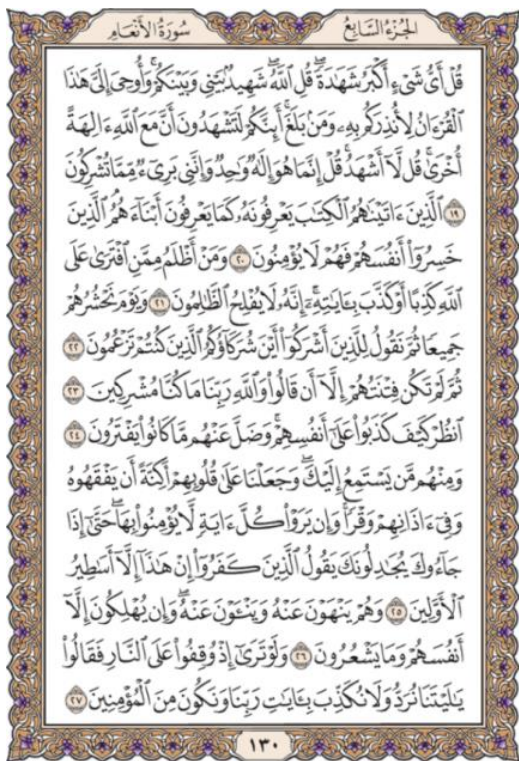 الجُزْءُ السَّابِعُ سُورَةُ الأَنْعَام
قُلْ أَىُّ شَىْءٍ أَكْبَرُ شَهَٰدَةًۖ قُلِ ٱللَّهُۖ شَهِيدُۢ بَيْنِى وَبَيْنَكُمْۚ وَأُوحِىَ إِلَىَّ هَٰذَا
ٱلْقُرْءَانُ لِأُنذِرَكُم بِهِۦ وَمَنۢ بَلَغَۚ أَئِنَّكُمْ لَتَشْهَدُونَ أَنَّ مَعَ ٱللَّهِ ءَالِهَةً
أُخْرَىٰۚ قُل لَّآ أَشْهَدُۚ قُلْ إِنَّمَا هُوَ إِلَٰهٌ وَٰحِدٌ وَإِنَّنِى بَرِىٓءٌ مِّمَّا تُشْرِكُونَ
١٩ ٱلَّذِينَ ءَاتَيْنَٰهُمُ ٱلْكِتَٰبَ يَعْرِفُونَهُۥ كَمَا يَعْرِفُونَ أَبْنَآءَهُمُۘ ٱلَّذِينَ
خَسِرُوٓا۟ أَنفُسَهُمْ فَهُمْ لَا يُؤْمِنُونَ ٢٠ وَمَنْ أَظْلَمُ مِمَّنِ ٱفْتَرَىٰ عَلَى
ٱللَّهِ كَذِبًا أَوْ كَذَّبَ بِـَٔايَٰتِهِۦٓۗ إِنَّهُۥ لَا يُفْلِحُ ٱلظَّٰلِمُونَ ٢١ وَيَوْمَ نَحْشُرُهُمْ
جَمِيعًا ثُمَّ نَقُولُ لِلَّذِينَ أَشْرَكُوٓا۟ أَيْنَ شُرَكَآؤُكُمُ ٱلَّذِينَ كُنتُمْ تَزْعُمُونَ ٢٢
ثُمَّ لَمْ تَكُن فِتْنَتُهُمْ إِلَّآ أَن قَالُوا۟ وَٱللَّهِ رَبِّنَا مَا كُنَّا مُشْرِكِينَ ٢٣
ٱنظُرْ كَيْفَ كَذَبُوا۟ عَلَىٰٓ أَنفُسِهِمْۚ وَضَلَّ عَنْهُم مَّا كَانُوا۟ يَفْتَرُونَ ٢٤
وَمِنْهُم مَّن يَسْتَمِعُ إِلَيْكَۖ وَجَعَلْنَا عَلَىٰ قُلُوبِهِمْ أَكِنَّةً أَن يَفْقَهُوهُ
وَفِىٓ ءَاذَانِهِمْ وَقْرًاۚ وَإِن يَرَوْا۟ كُلَّ ءَايَةٍ لَّا يُؤْمِنُوا۟ بِهَاۖ حَتَّىٰٓ إِذَا
جَآءُوكَ يُجَٰدِلُونَكَ يَقُولُ ٱلَّذِينَ كَفَرُوٓا۟ إِنْ هَٰذَآ إِلَّآ أَسَٰطِيرُ
ٱلْأَوَّلِينَ ٢٥ وَهُمْ يَنْهَوْنَ عَنْهُ وَيَنْـَٔوْنَ عَنْهُۖ وَإِن يُهْلِكُونَ إِلَّآ
أَنفُسَهُمْ وَمَا يَشْعُرُونَ ٢٦ وَلَوْ تَرَىٰٓ إِذْ وُقِفُوا۟ عَلَى ٱلنَّارِ فَقَالُوا۟
يَٰلَيْتَنَا نُرَدُّ وَلَا نُكَذِّبَ بِـَٔايَٰتِ رَبِّنَا وَنَكُونَ مِنَ ٱلْمُؤْمِنِينَ ٢٧
١٣٠